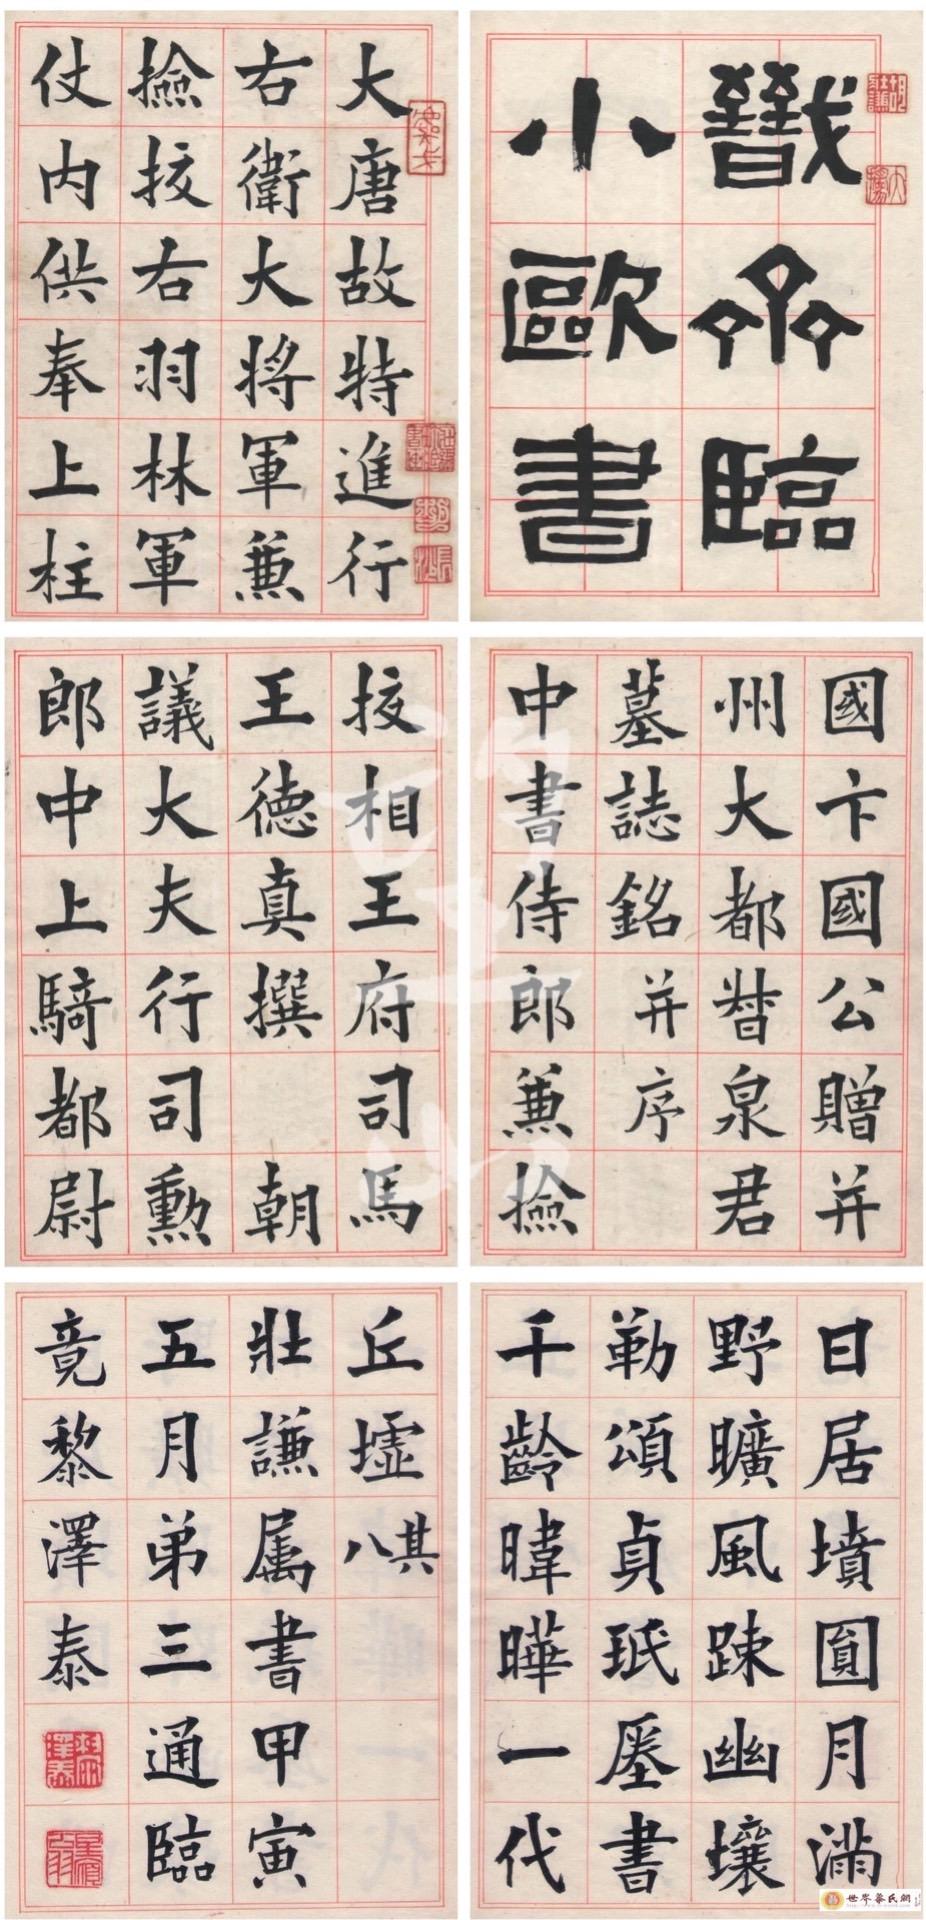 戩齊臨
小歐書
大唐故特進行
右衛大將軍兼
撿挍右羽林軍
仗内供奉上柱
國卞國公贈并
州大都督泉君
墓誌銘并序
中書侍郎兼撿
挍相王府司馬
王德真撰 朝
議大夫行司勳
郎中上騎都尉
日居墳圓月滿
野曠風踈幽壤
勒頌貞珉書
千齡暐曄一代
丘墟其八
壯謙属書甲寅
五月弟三通臨
竟黎澤泰